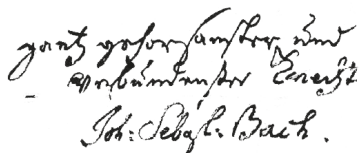 gantz gehorsamster und
verbundenster Knecht
Joh: Sebast: Bach.